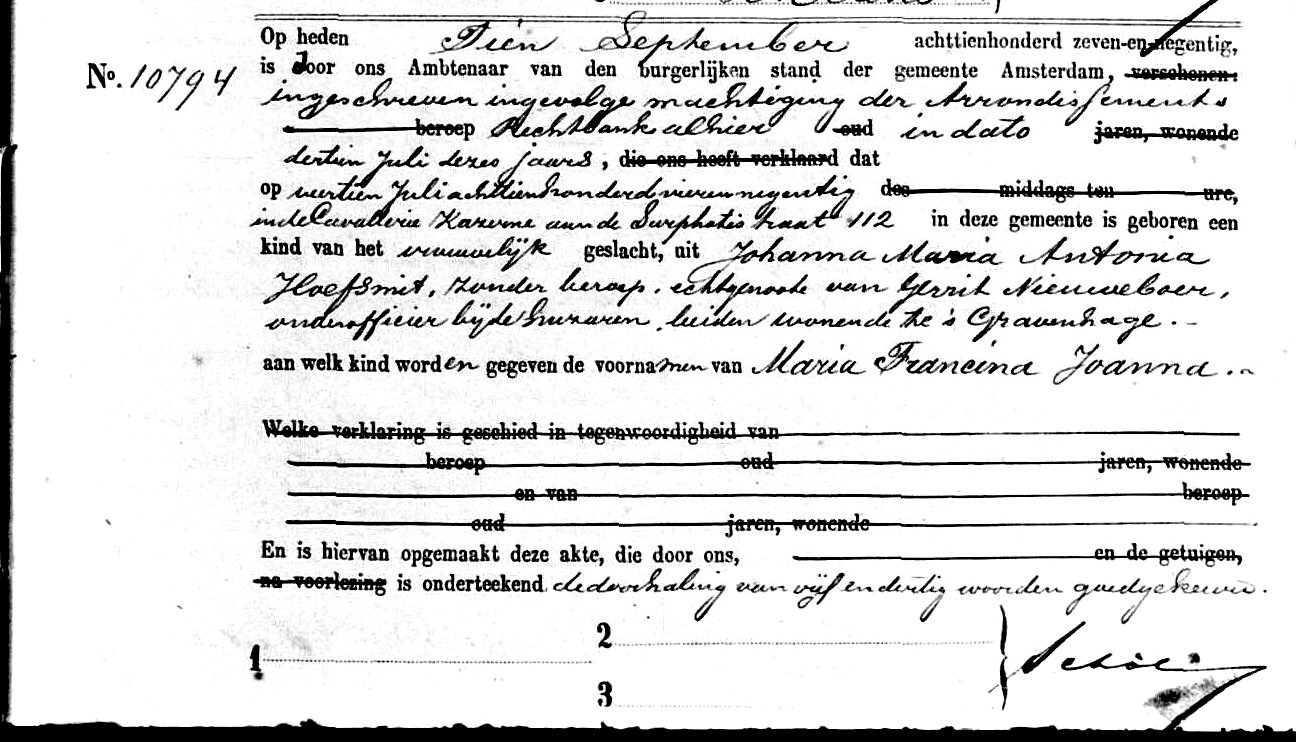 Op heden Tien September achttienhonderd zeven-en-negentig,
No. 10794
is door ons Ambtenaar van den burgerlijken stand der gemeente Amsterdam, verschenen:
ingeschreven ingevolge machtiging der Arrondissements
beroep Rechtbank alhier oud in dato jaren, wonende
dertien Juli dezes jaars, die ons heeft verklaard dat
op veertien Juli achttienhonderd vierennegentig des middags ten ure,
in de Cavallerie Kazerne aan de Sarphatistraat 112 in deze gemeente is geboren een
kind van het vrouwelijk geslacht, uit Johanna Maria Antonia
Hoefsmit, zonder beroep, echtgenoote van Gerrit Nieuweboer,
onderofficier bij de huzaren, beiden wonende te 's Gravenhage.-
aan welk kind worden gegeven de voornamen van Maria Francina Joanna.-
Welke verklaring is geschied in tegenwoordigheid van
beroep oud jaren, wonende
en van beroep
oud jaren, wonende
En is hiervan opgemaakt deze akte, die door ons, en de getuigen,
na voorlezing is onderteekend de doorhaling van vijf en dertig woorden goedgekeurd.
2
1
3